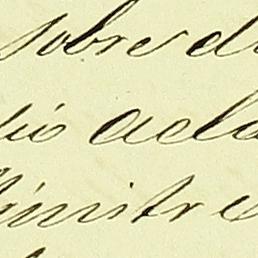 sobre d
ió acla
ministre